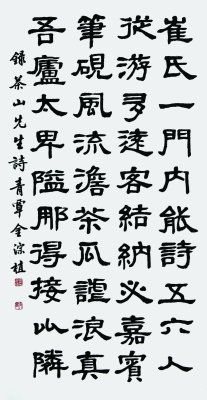 崔氏一門內能詩五六人
從游多遠客結納必嘉賓
筆硯風流澹茶瓜謔浪真
吾廬太卑隘那得接山隣
錄茶山先生詩青覃金淙植